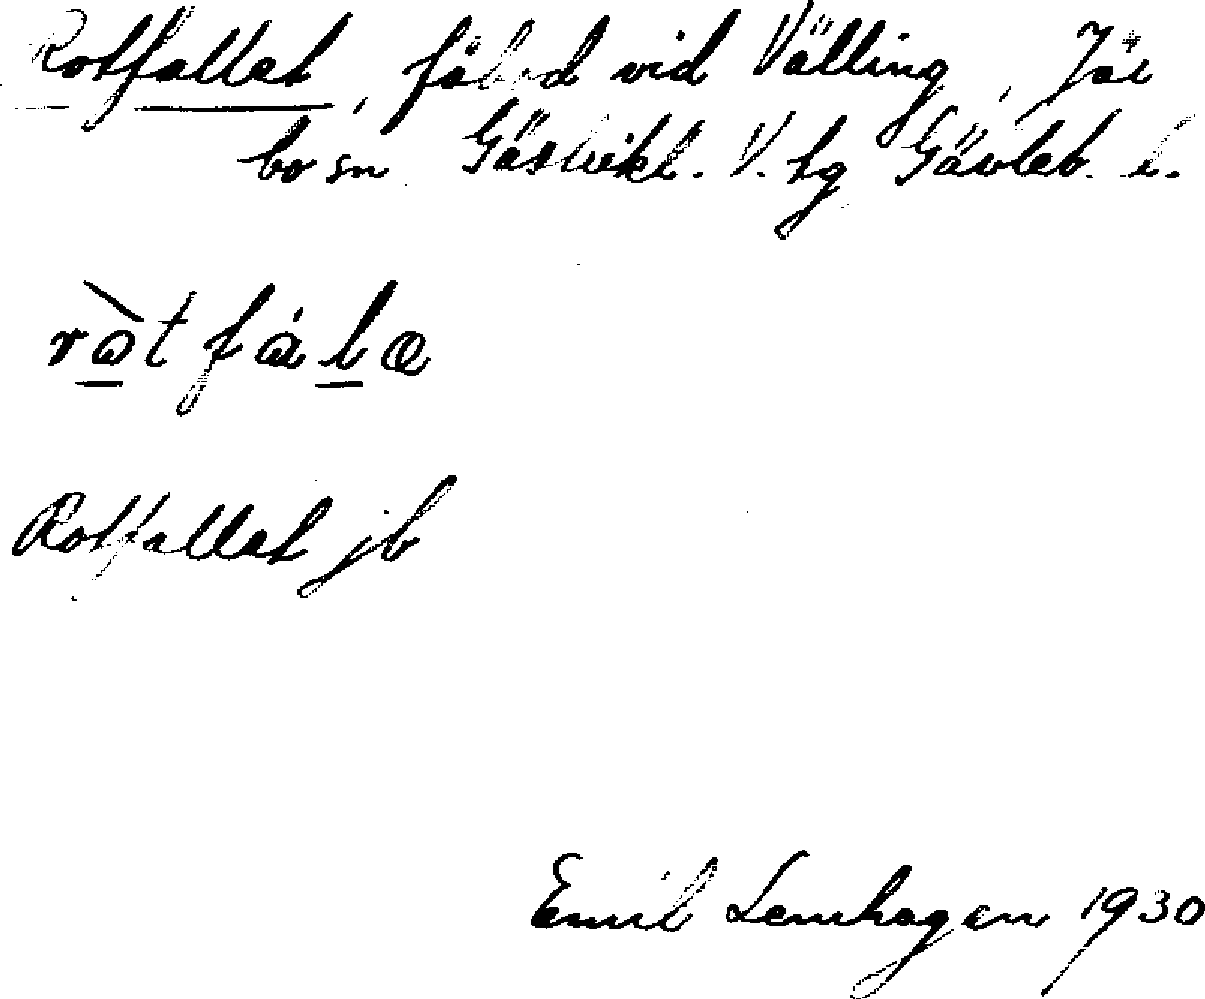 Rotfallet, fäbod vid Välling, Jär
bo sn Gästrikl. V. tg Gävleb. l.
ròt fálæ
Rotfallet jb
Emil Lemhagen 1930